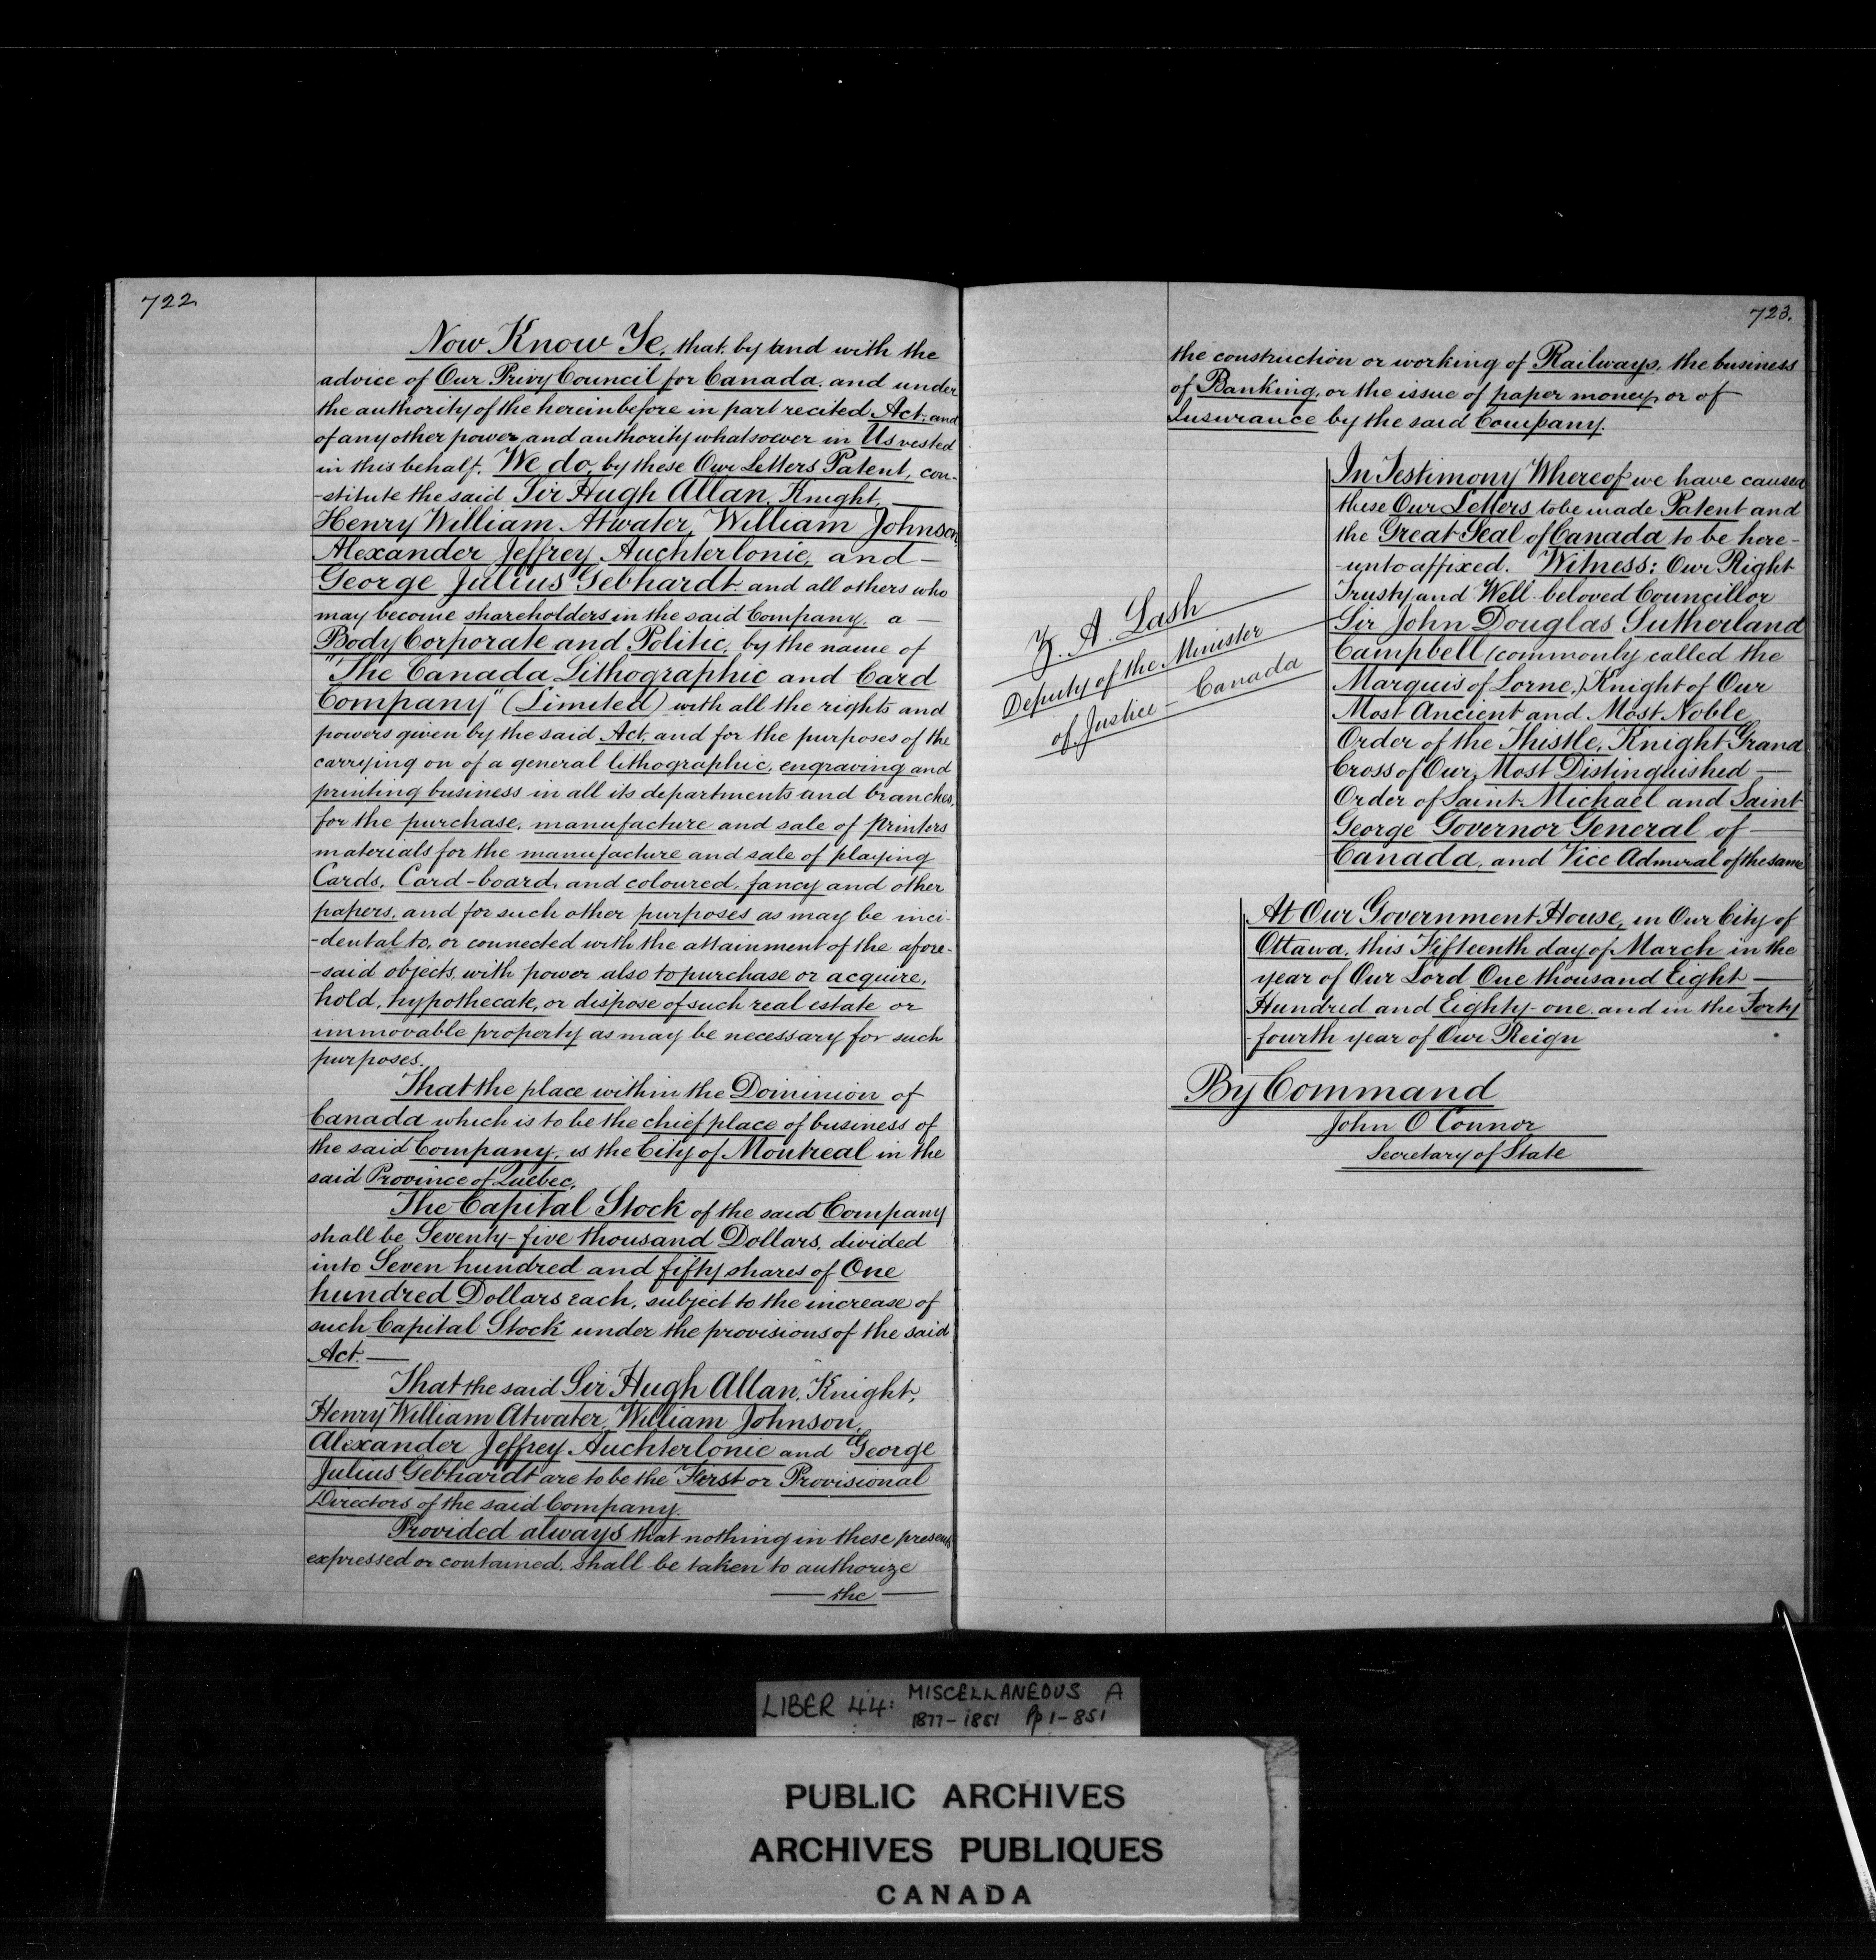 722
Now Know Ye, that, by and with the
advice of Our Privy Council for Canada, and under
the authority of the hereinbefore in part recited Act, and
of any other power and authority whatsoever in Us vested
in this behalf. We do, by these Our Letters Patent, con-
-stitute the said Sir Hugh Allan, Knight,
Henry William Atwater, William Johnson,
Alexander Jeffrey Auchterlonie, and
George Julius Gebhardt and all others who
may become shareholders in the said Company, a
Body Corporate and Politic, by the name of
"The Canada Lithographic and Card
Company" (Limited) with all the rights and
powers given by the said Act, and for the purposes of the
carrying on of a general lithographic, engraving and
printing business in all its departments and branches,
for the purchase, manufacture and sale of printers
materials for the manufacture and sale of playing
Cards, Card-board, and coloured, fancy and other
papers, and for such other purposes as may be inci-
-dental to, or connected with the attainment of the afore-
-said objects, with power also to purchase or acquire,
hold, hypothecate, or dispose of such real estate or
immovable property as may be necessary for such
purposes.
That the place within the Dominion of
Canada which is to be the chief place of business of
the said Company, is the City of Montreal in the
said Province of Quebec.
The Capital Stock of the said Company
shall be Seventy-five thousand Dollars, divided
into Seven hundred and fifty shares of One
hundred Dollars each, subject to the increase of
such Capital Stock under the provisions of the said
Act.—
That the said Sir Hugh Allan, Knight,
Henry William Atwater, William Johnson,
Alexander Jeffrey Auchterlonie and George
Julius Gebhardt are to be the First or Provisional
Directors of the said Company.
Provided always that nothing in these presents
expressed or contained, shall be taken to authorize
— the —
723.
the construction or working of Railways, the business
of Banking, or the issue of paper money, or of
Insurance by the said Company.
In Testimony Whereof we have caused
these Our Letters to be made Patent and
the Great Seal of Canada to be here-
-unto affixed. Witness: Our Right
Trusty and Well-beloved Councillor
Sir John Douglas Sutherland
Campbell (commonly called the
Marquis of Lorne,) Knight of Our
Most Ancient and Most Noble
Order of the Thistle, Knight Grand
Cross of Our Most Distinguished —
Order of Saint Michael and Saint
George Governor General of —
Canada, and Vice Admiral of the same
Z. A. Lash
Deputy of the Minister
of Justice — Canada
At Our Government House, in Our City of
Ottawa, this Fifteenth day of March in the
year of Our Lord One thousand Eight —
Hundred and Eighty-one and in the Forty
-fourth year of Our Reign
By Command
John O'Connor
Secretary of State
LIBER 44: MISCELLANEOUS A
1877-1881 Pp 1-851
PUBLIC ARCHIVES
ARCHIVES PUBLIQUES
CANADA